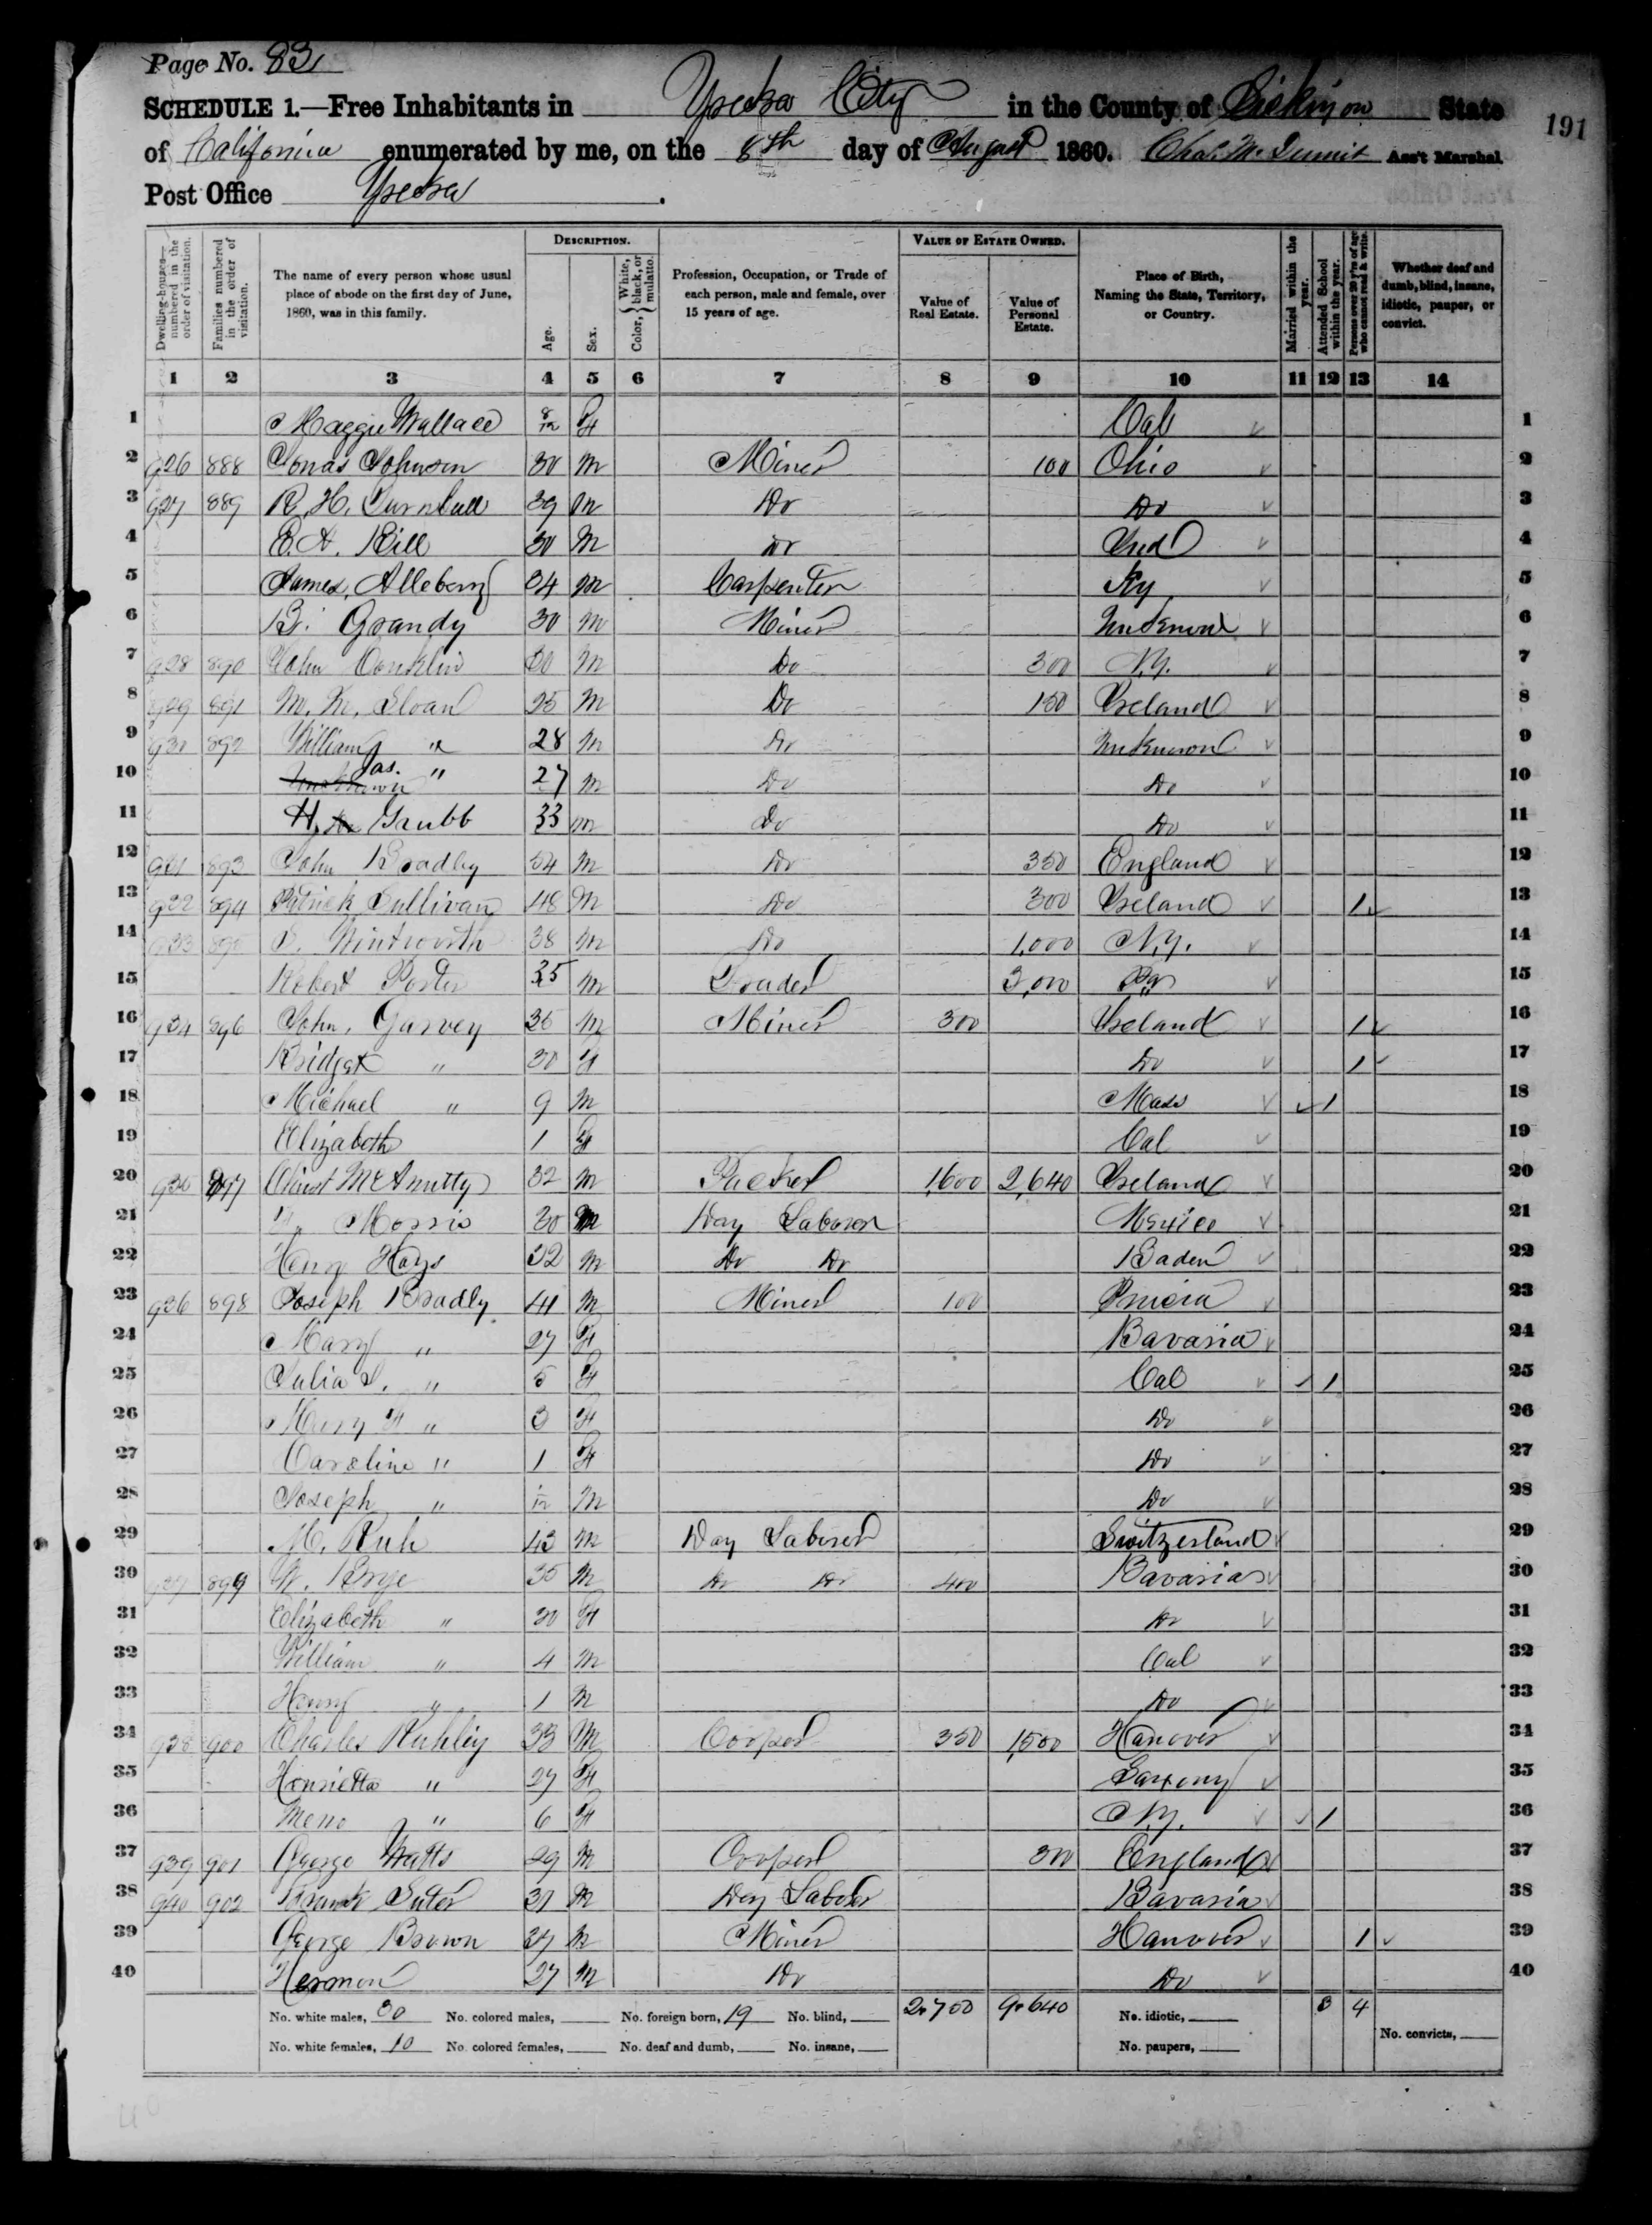 Page No. 83
SCHEDULE 1.—Free Inhabitants in Yreka City in the County of Siskiyou State
191
of California enumerated by me, on the 8th day of August 1860. Chas. McDermit Ass't Marshal
Post Office Yreka.
Dwelling-houses—numbered in the order of visitation.
Families numbered in the order of visitation.
The name of every person whose usual place of abode on the first day of June, 1860, was in this family.
DESCRIPTION.
Age.
Sex.
Color, { White, black, or mulatto.
Profession, Occupation, or Trade of each person, male and female, over 15 years of age.
VALUE OF ESTATE OWNED.
Value of Real Estate.
Value of Personal Estate.
Place of Birth, Naming the State, Territory, or Country.
Married within the year.
Attended School within the year.
Persons over 20 y'rs of age who cannot read & write.
Whether deaf and dumb, blind, insane, idiotic, pauper, or convict.
1 2 3 4 5 6 7 8 9 10 11 12 13 14
1 Maggie Wallace 8/12 f Cal 1
2 926 888 Jonas Johnson 30 m Miner 100 Ohio 2
3 927 889 R. H. Turnbull 39 m Do Do 3
4 E. A. Bill 30 m Do Ind 4
5 James, Alleberry 34 m Carpenter Ky 5
6 B. Grandy 30 m Miner Unknown 6
7 928 890 John Conklin 30 m Do 300 N.Y. 7
8 929 891 M. M. Sloan 25 m Do 150 Ireland 8
9 930 892 William " 28 m Do Unknown 9
10 Jas. " 27 m Do Do 10
11 H. Grubb 33 m Do Do 11
12 931 893 John Bradley 54 m Do 350 England 12
13 932 894 Patrick Sullivan 48 m Do 300 Ireland 1 13
14 933 895 S. Wintworth 38 m Do 1,000 N.Y. 14
15 Robert Porter 35 m Trader 3,000 Pa 15
16 934 896 John, Garvey 36 m Miner 300 Ireland 1 16
17 Bridget " 30 f Do 1 17
18 Michael " 9 m Mass 1 18
19 Elizabeth 1 f Cal 19
20 935 897 McAnutty 32 m Packer 1,600 2,640 Ireland 20
21 Morris 30 m Day Laborer Mexico 21
22 Henry Hays 32 m Do Do Baden 22
23 936 898 Joseph Bradly 41 m Miner 100 Prussia 23
24 Mary " 27 f Bavaria 24
25 Julia S. " 5 f Cal 1 25
26 Mary F " 3 f Do 26
27 Caroline " 1 f Do 27
28 Joseph " 1/12 m Do 28
29 M. Ruh 43 m Day Laborer Switzerland 29
30 937 899 W. Brye 35 m Do Do 400 Bavaria 30
31 Elizabeth " 30 f Do 31
32 William " 4 m Cal 32
33 Henry " 1 m Do 33
34 938 900 Charles Ruhley 33 m Cooper 350 1,500 Hanover 34
35 Henrietta " 27 f Saxony 35
36 Meno " 6 f N.Y. 1 36
37 939 901 George Watts 29 m Cooper 300 England 37
38 940 902 Frank Suter 31 m Day Laborer Bavaria 38
39 George Brown 27 m Miner Hanover 1 39
40 Hermon 27 m Do Do 40
No. white males, 30 No. colored males, No. foreign born, 19 No. blind, 2.700 9.640 No. idiotic, 3 4
No. white females, 10 No. colored females, No. deaf and dumb, No. insane, No. paupers, No. convicts,